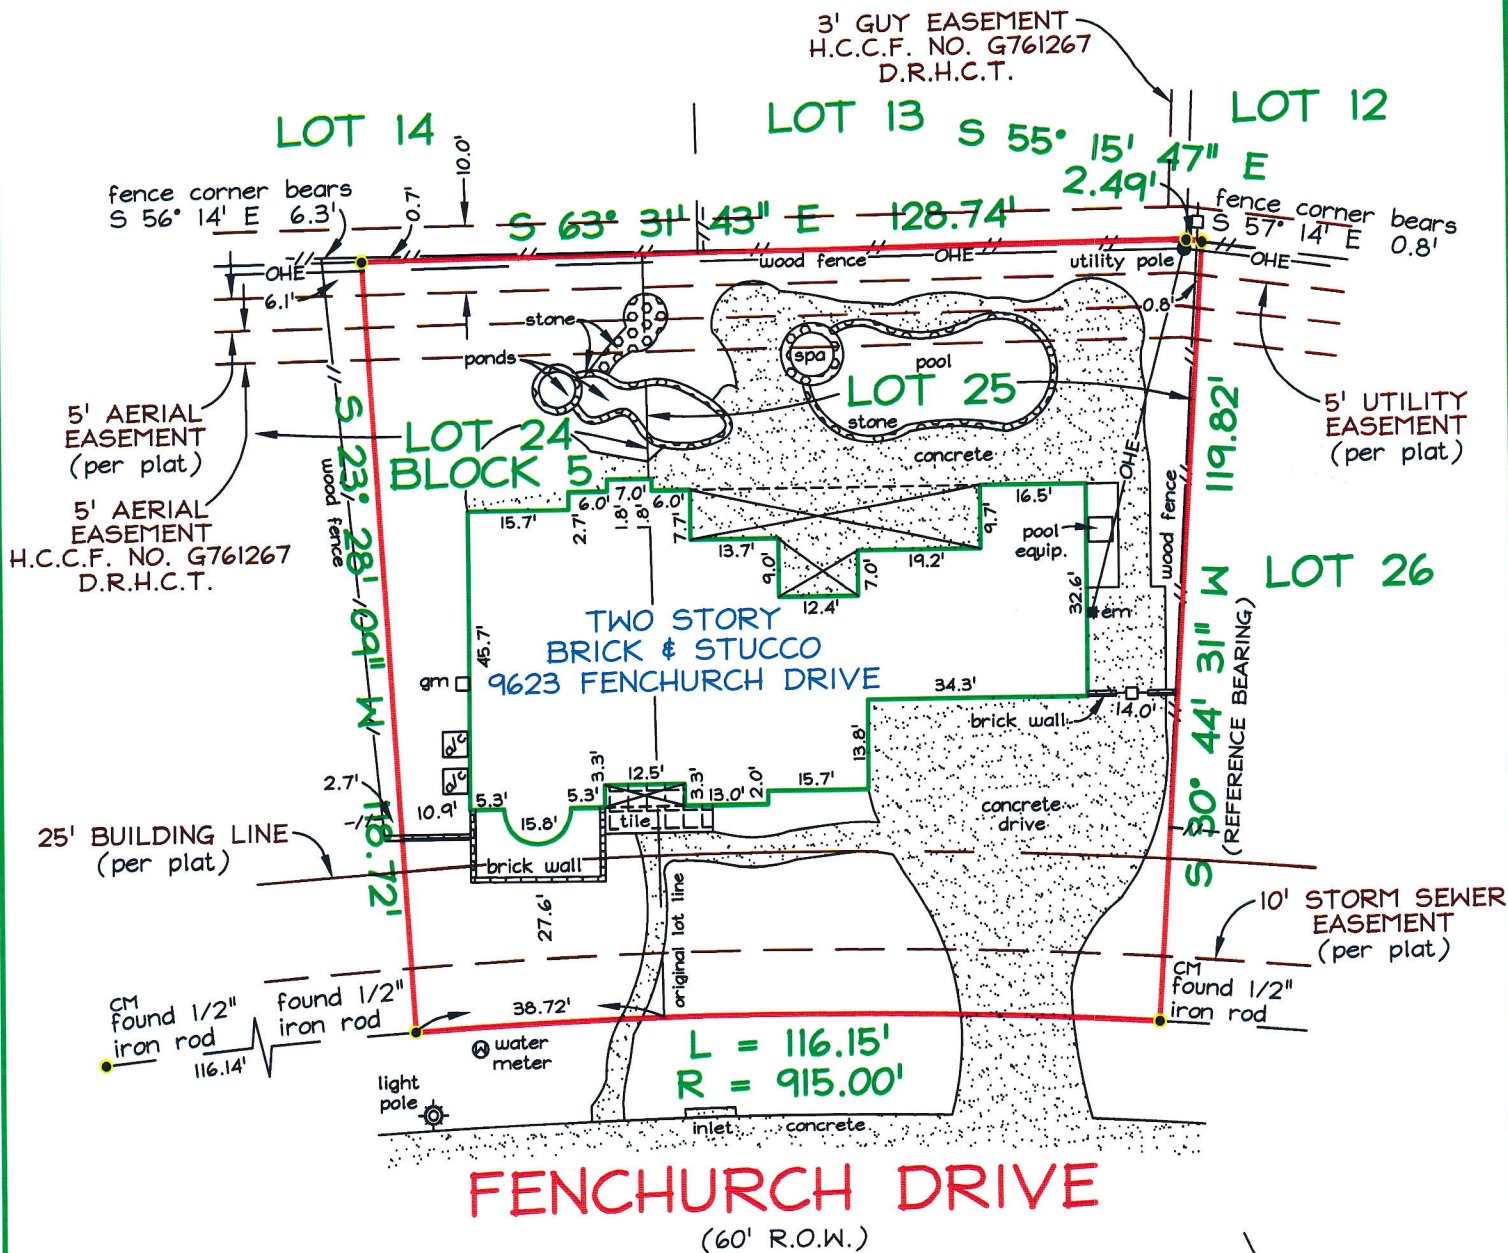 3' GUY EASEMENT
H.C.C.F. NO. G761267
D.R.H.C.T.
LOT 14
LOT 13
LOT 12
S 55° 15' 47" E
2.49'
fence corner bears
S 56° 14' E 6.3'
0.7'
10.0'
S 63° 31' 43" E 128.74'
fence corner bears
S 57° 14' E
0.8'
OHE
wood fence
OHE
utility pole
OHE
6.1'
0.8'
stone
ponds
spa
pool
LOT 25
stone
concrete
5' AERIAL
EASEMENT
(per plat)
5' AERIAL
EASEMENT
H.C.C.F. NO. G761267
D.R.H.C.T.
LOT 24
BLOCK 5
5' UTILITY
EASEMENT
(per plat)
S 23° 28' 09" W 118.72'
wood fence
OHE
wood fence
119.82'
S 30° 44' 31" W
(REFERENCE BEARING)
LOT 26
15.7'
2.7'
6.0'
7.0'
1.8'
1.8'
6.0'
7.7'
13.7'
9.0'
12.4'
7.0'
19.2'
9.7'
16.5'
pool
equip.
32.6'
em
45.7'
TWO STORY
BRICK & STUCCO
9623 FENCHURCH DRIVE
gm
34.3'
brick wall
14.0'
13.8'
a/c
a/c
2.7'
10.9'
5.3'
15.8'
5.3'
3.3'
12.5'
3.3'
13.0'
2.0'
15.7'
tile
brick wall
concrete
drive
25' BUILDING LINE
(per plat)
27.6'
original lot line
10' STORM SEWER
EASEMENT
(per plat)
CM
found 1/2"
iron rod
found 1/2"
iron rod
116.14'
38.72'
CM
found 1/2"
iron rod
W
water
meter
L = 116.15'
R = 915.00'
light
pole
inlet
concrete
FENCHURCH DRIVE
(60' R.O.W.)